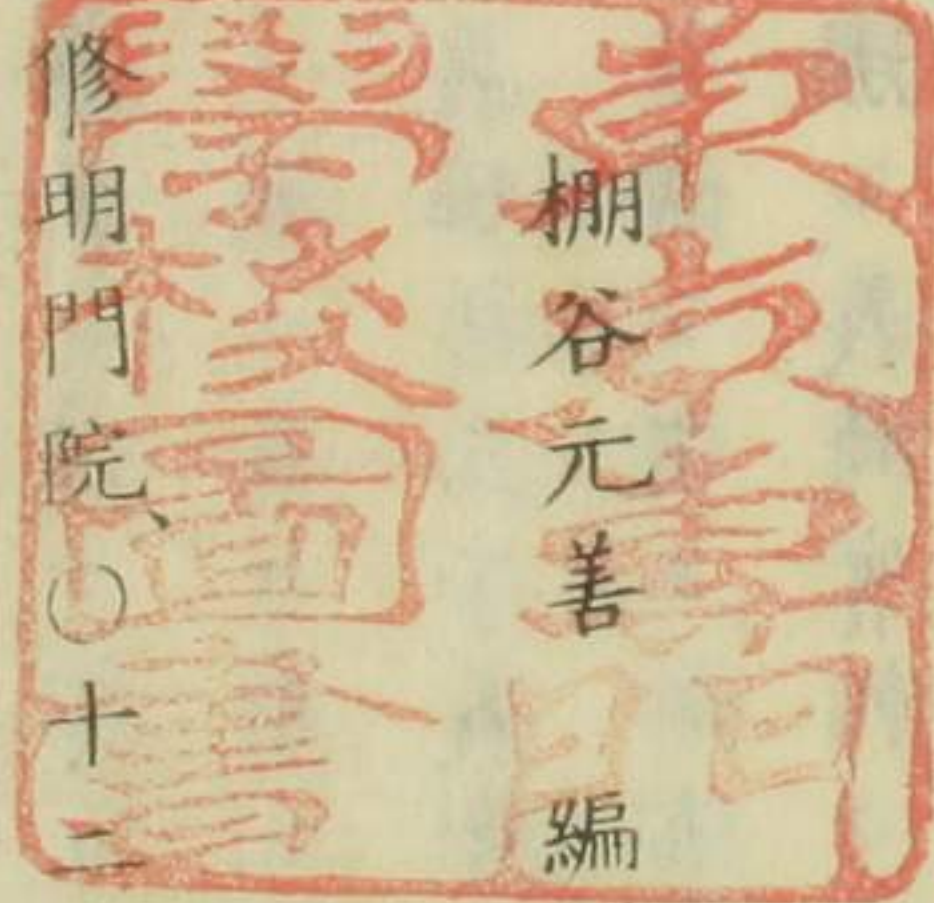 棚谷元善編
修明門院、〇十二
東京專門
學校圖書